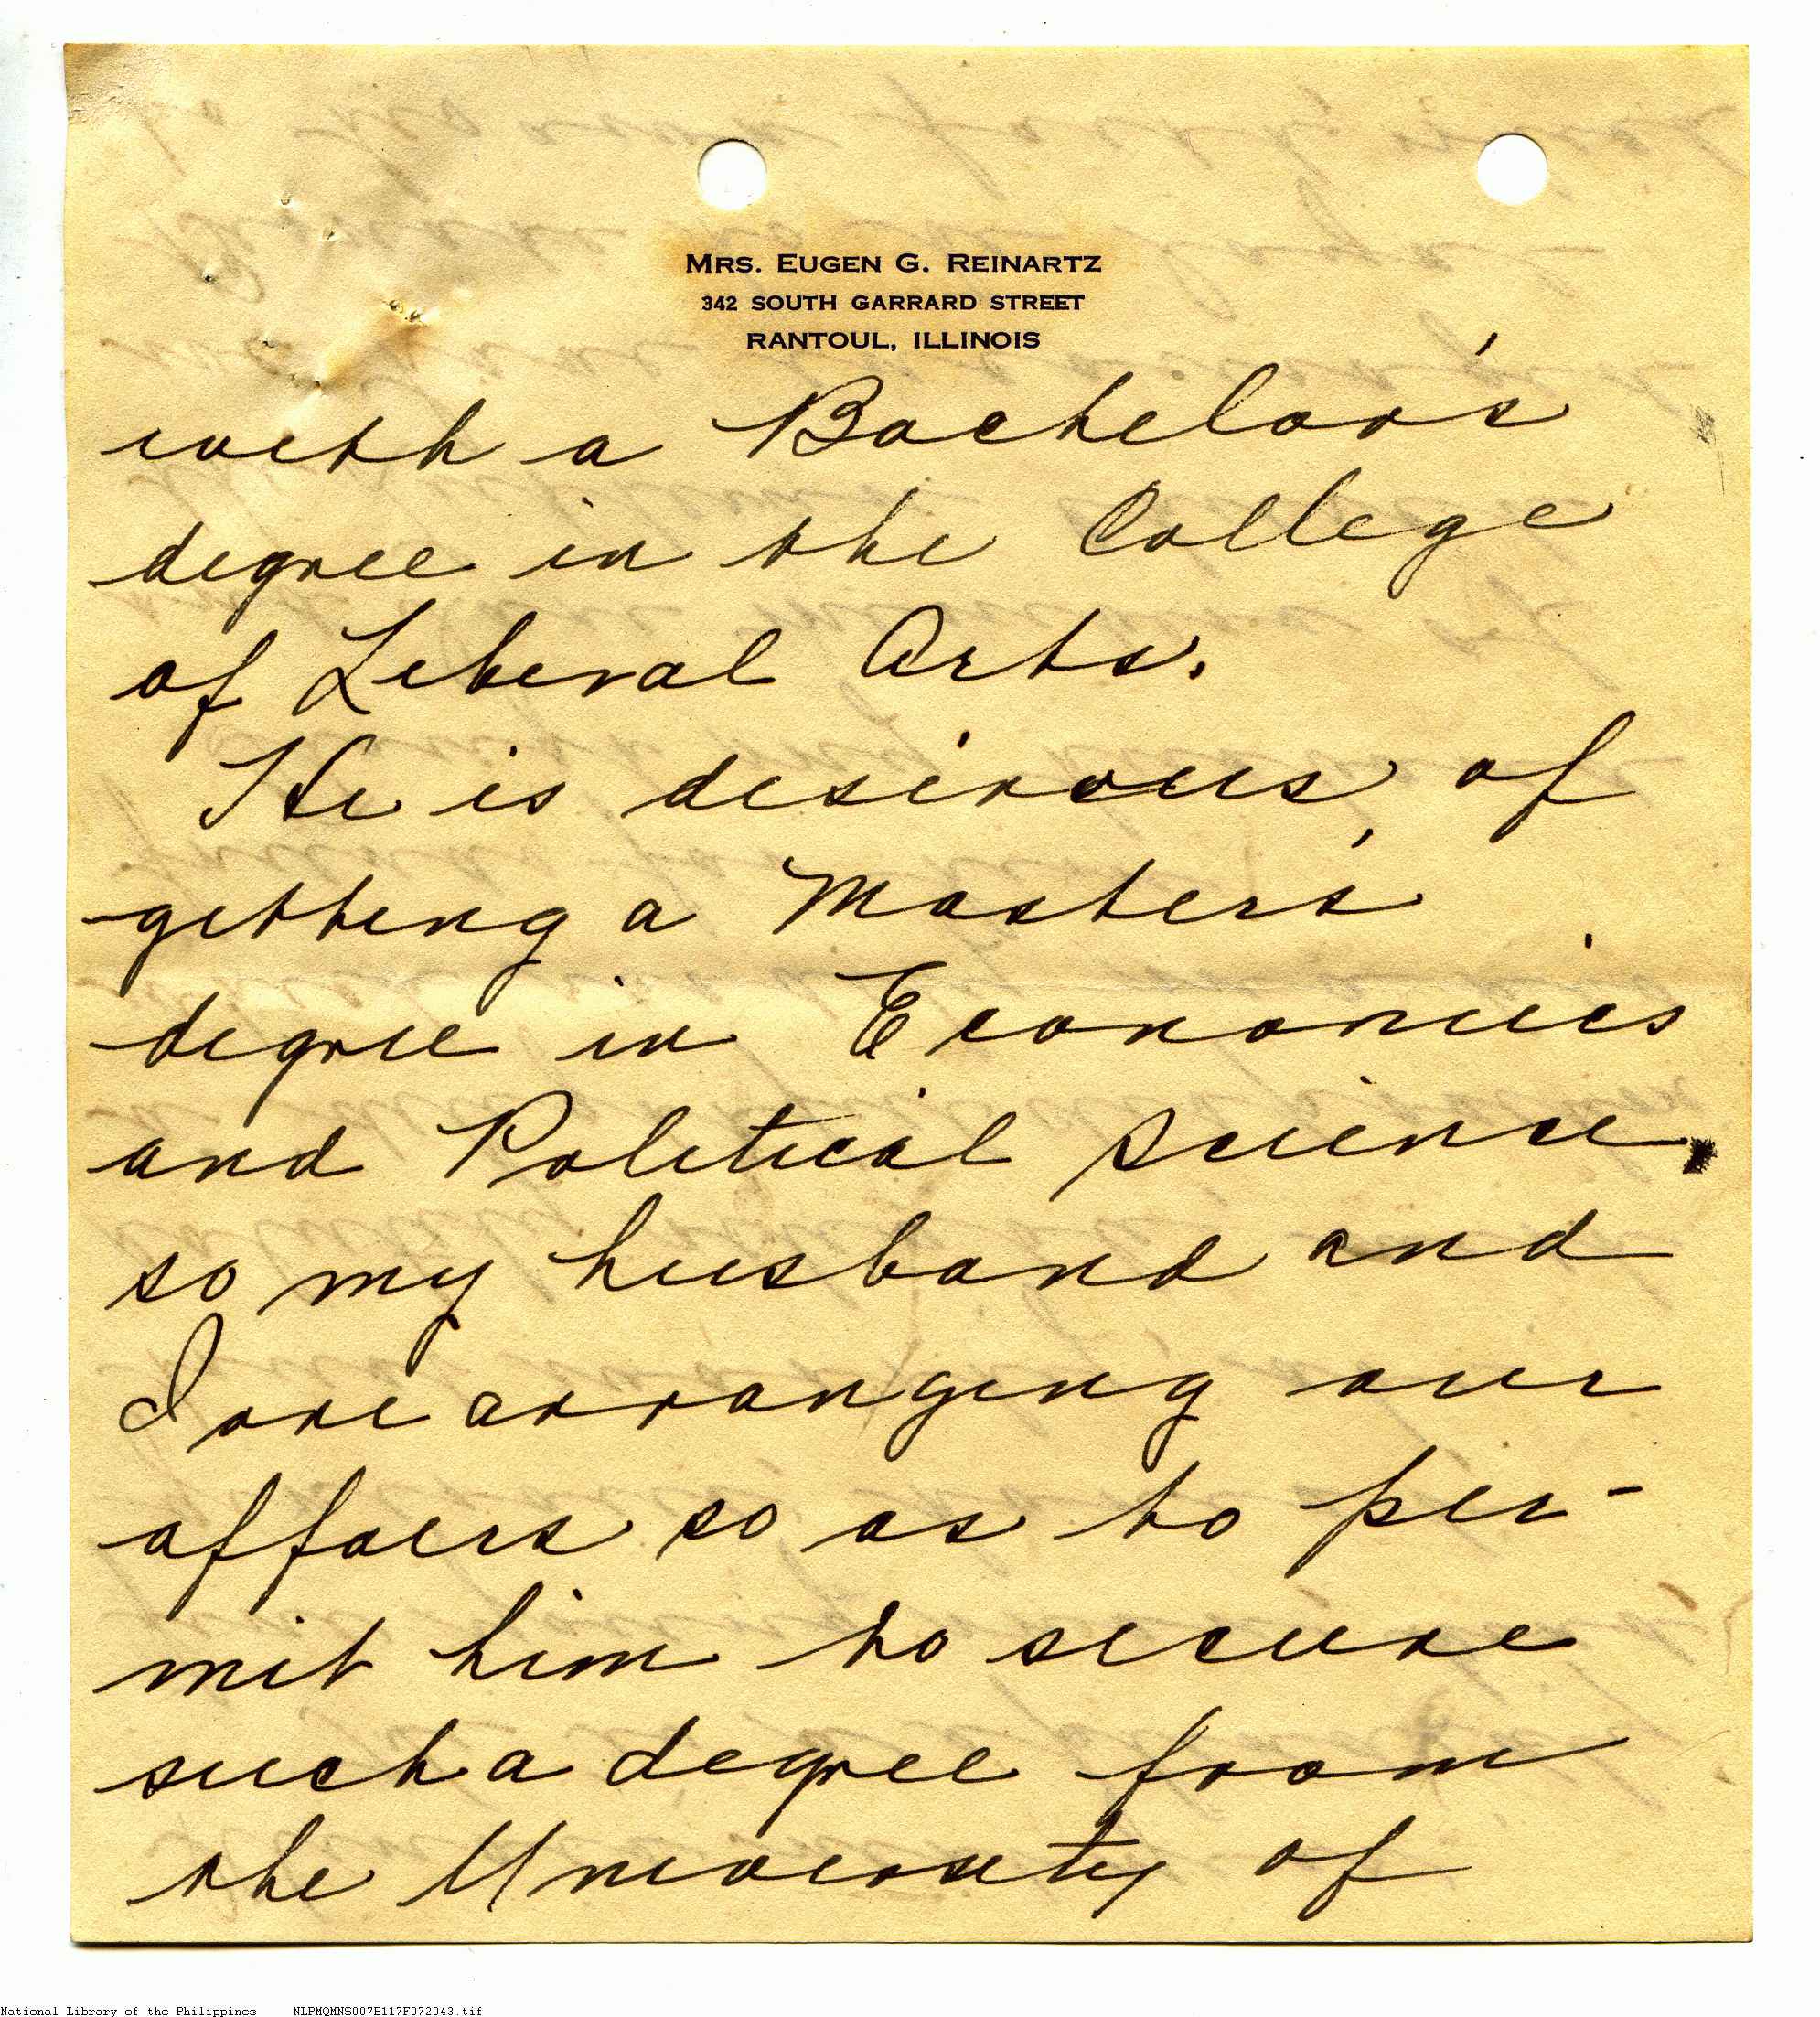 MRS. EUGEN G. REINARTZ
342 SOUTH GARRARD STREET
RANTOUL, ILLINOIS
with a Bachelor's
degree in the College
of Liberal Arts.
He is desirous of
getting a Master's
degree in Economics
and Political Science,
so my husband and
I are arranging our
affairs so as to per-
mit him to secure
such a degree from
the University of
National Library of the Philippines NLPMQMNS007B117F072043.tif